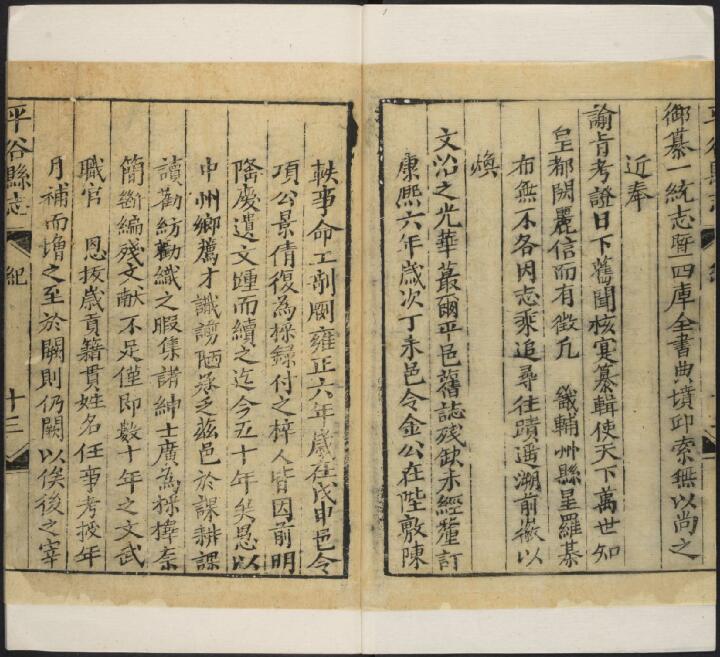 御纂一統志曁四庫全書典墳邱索無以尚之
近奉
諭旨考證日下舊聞核寔纂輯使天下萬世知
皇都閎麗信而有徵凡　畿輔州縣星羅棊
布無不各因志乘追尋往蹟遥溯前徽以
煥
文治之光華蕞爾平邑舊誌殘缺未經釐訂
康熙六年歲次丁未邑令金公在陞敷陳
軼事命工剞劂雍正六年歲在戊申邑令
項公景倩復為採録付之梓人皆因前明
隆慶遺文踵而續之迄今五十年矣愚以
中州鄉薦才識謭陋承乏兹邑於課耕課
讀勸紡勸織之暇集諸紳士廣為採擇奈
簡斷編殘文献不足僅即数十年之文武
職官　恩拔歲貢籍貫姓名任事考授年
月補而增之至於闕則仍闕以俟後之宰
平谷縣志　紀　十三